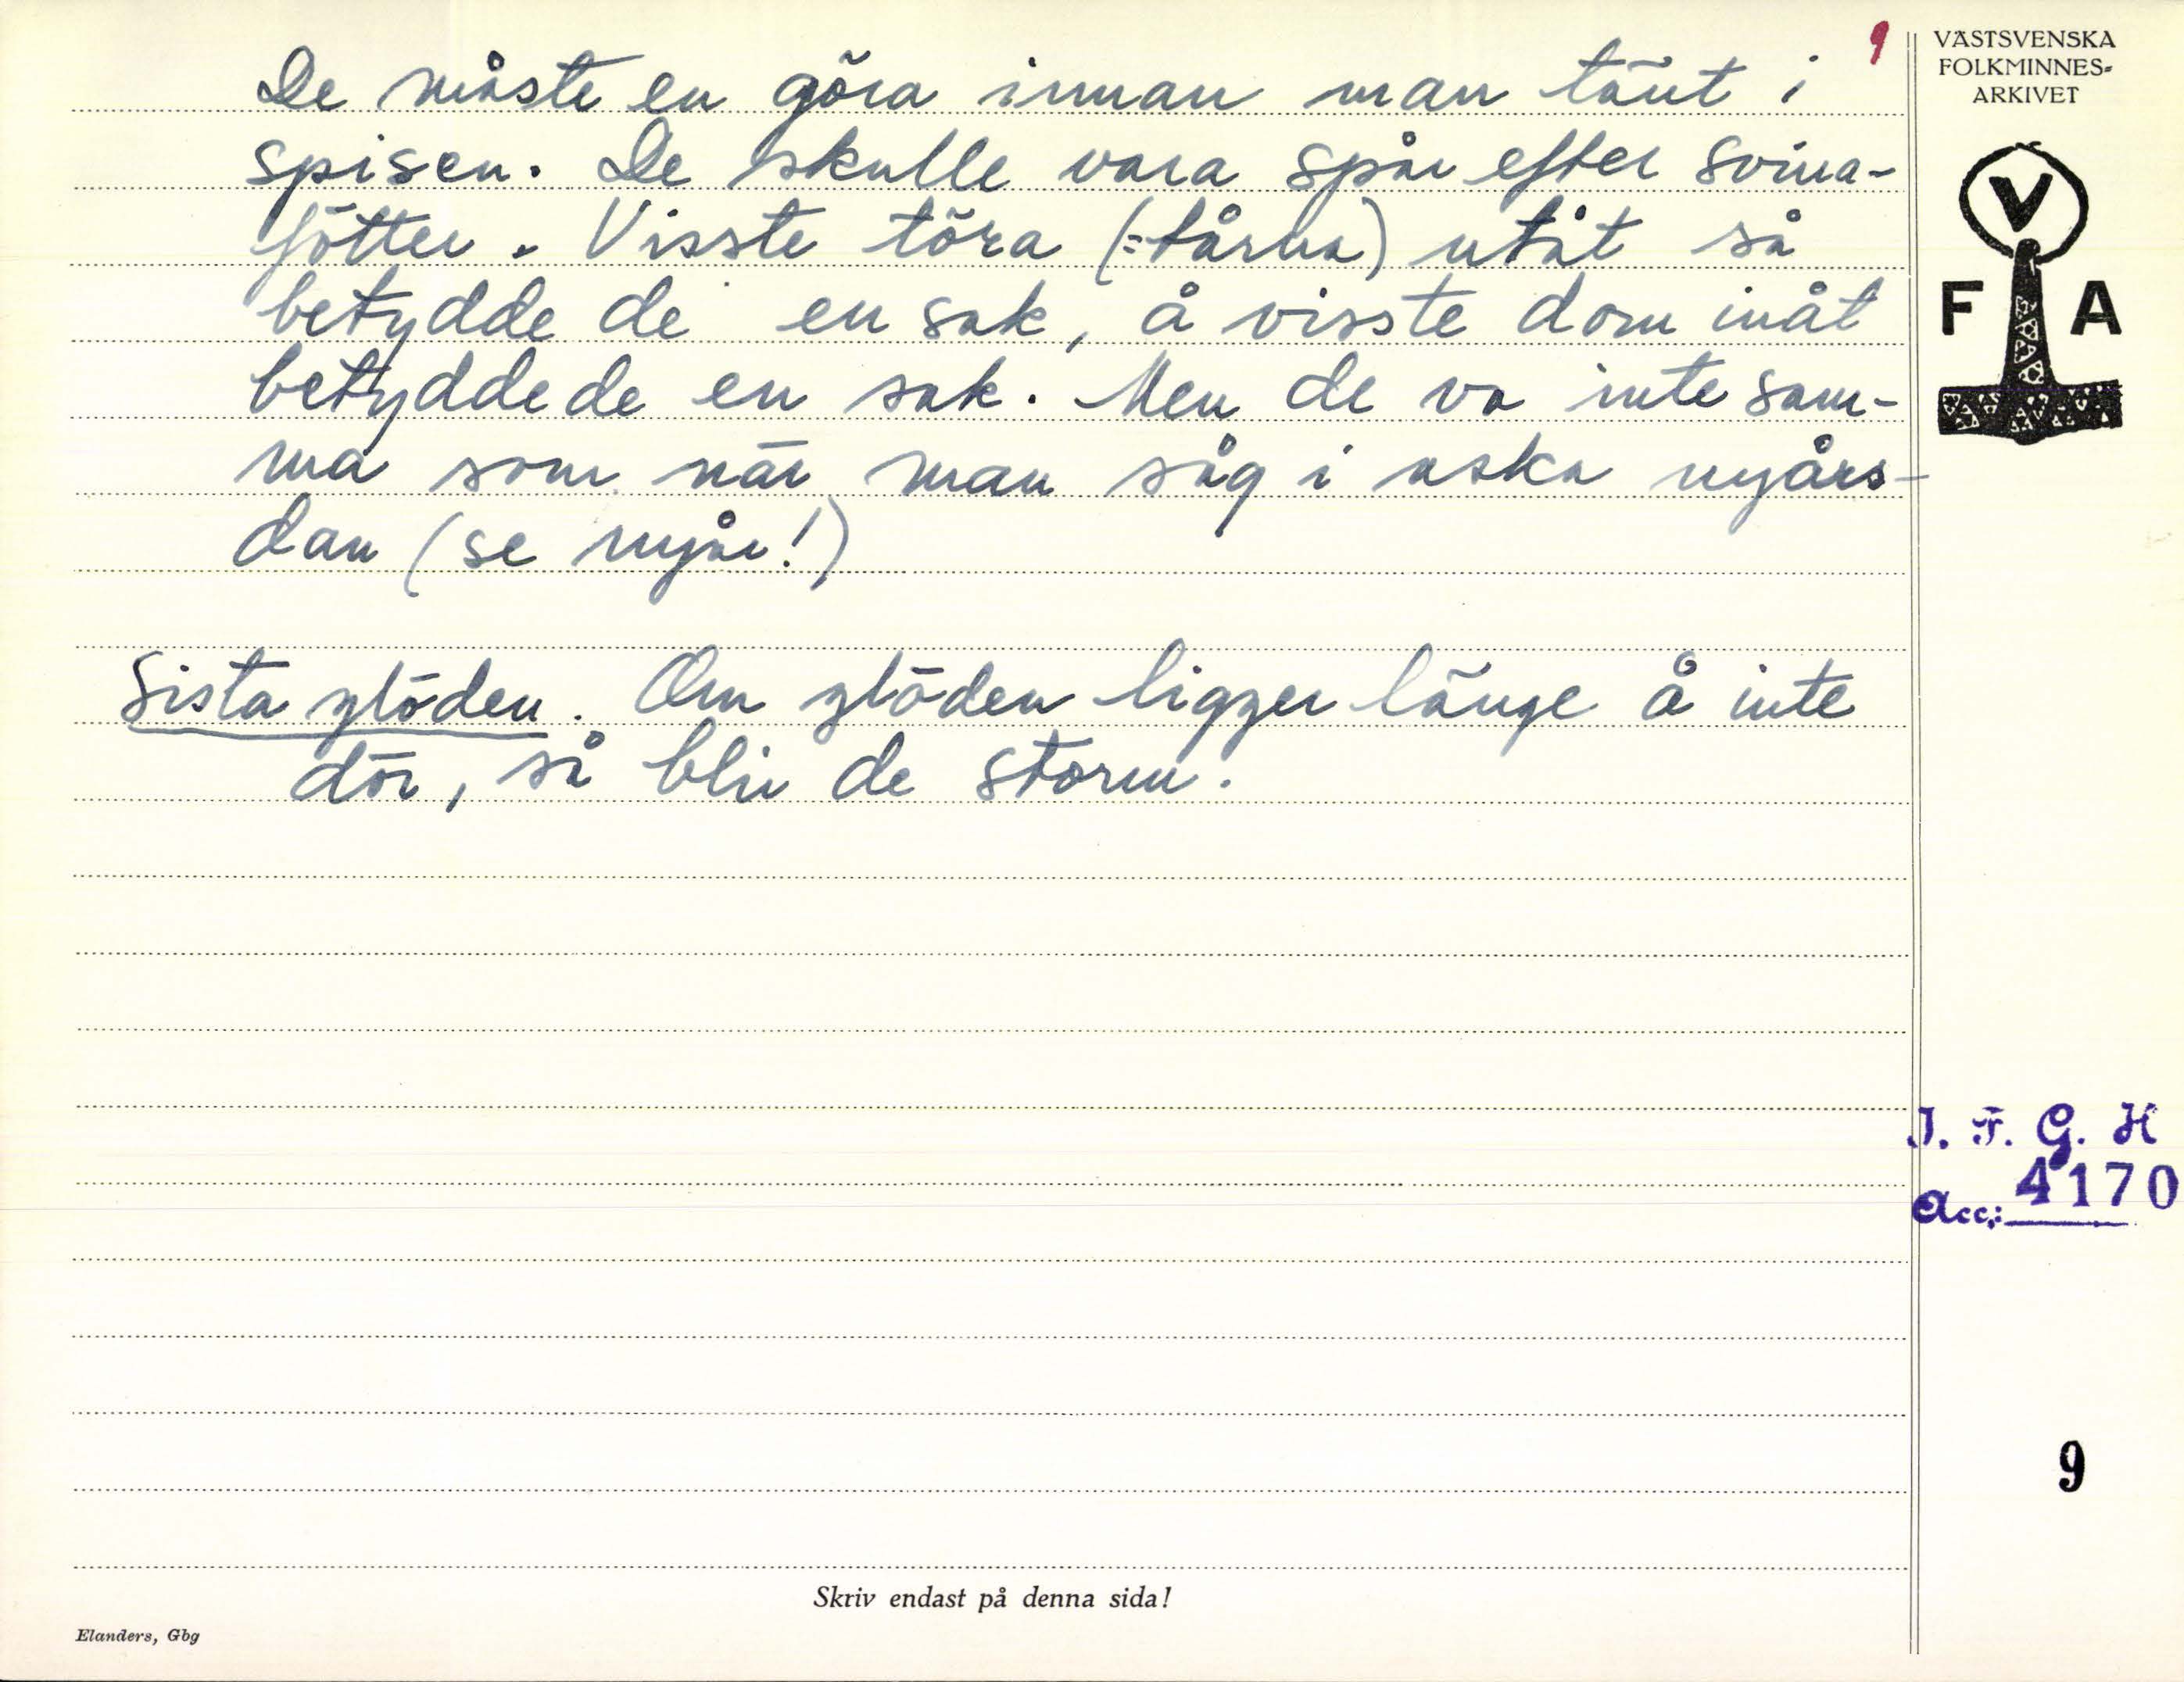 De måste en göra innan man tänt i
spisen. De skulle vara spår efter svina-
fötter. Visste töra (=tårna) utåt så
betydde de en sak, å visste dom inåt
betydde de en sak. Men de va inte sam-
ma som när man såg i aska nyårs-
dan (se nyår!)
Sista glöden. Om glöden ligger länge å inte
dör, så blir de storm.
9
VÄSTSVENSKA
FOLKMINNES-
ARKIVET
V
F A
I. F. G. H
Acc.: 4170
9
Skriv endast på denna sida!
Elanders, Gbg